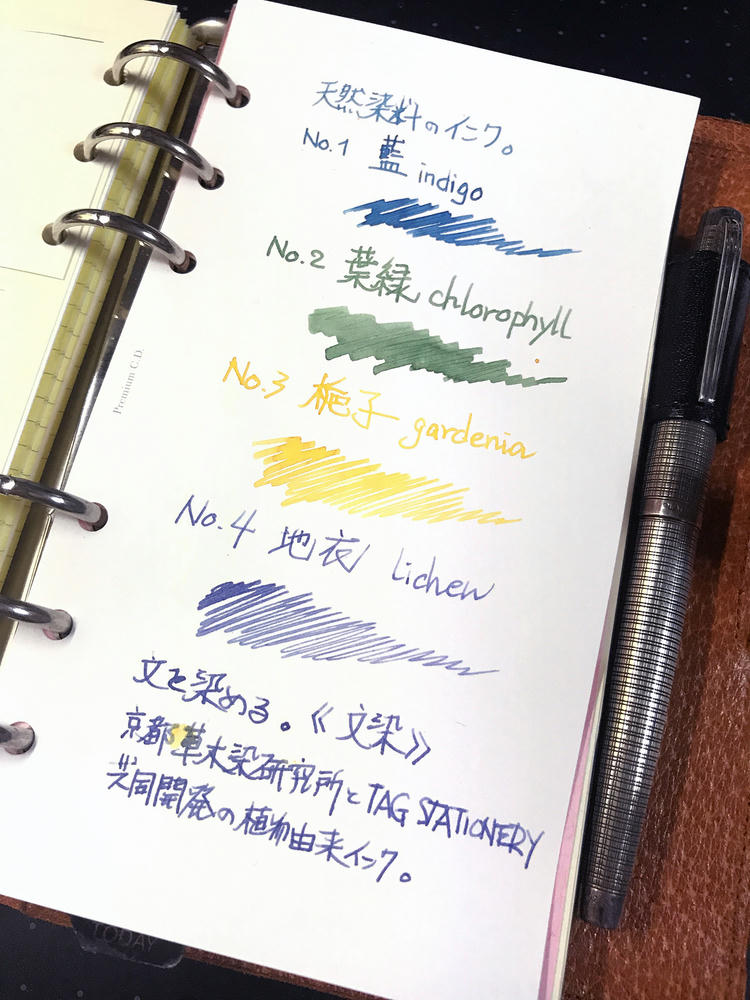 天然染料のインク。
No.1 藍 indigo
No.2 葉緑 chlorophyll
No.3 梔子 gardenia
No.4 地衣 lichen
文を染める。《文染》
京都草木染研究所とTAG STATIONERY
共同開発の植物由来インク。
Premium C.D.
TODAY